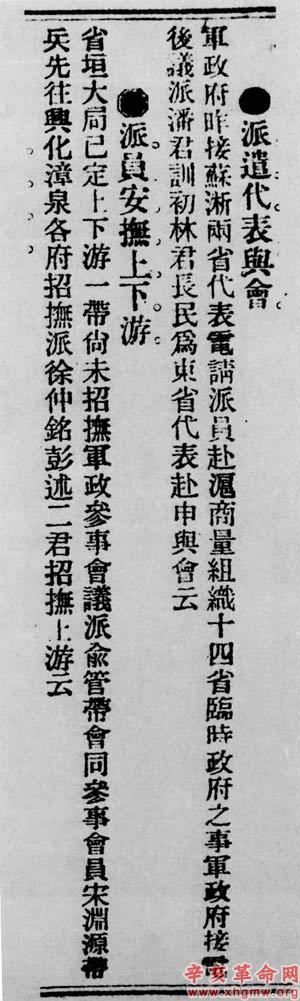 ●派遣代表與會
軍政府昨接蘇浙兩省代表電請派員赴滬商量組織十四省臨時政府之事軍政府接電
後議派潘君訓初林君長民爲東省代表赴申與會云
●派員安撫上下游
省垣大局已定上下游一帶尙未招撫軍政參事會議派兪管帶會同參事會員宋淵源帶
兵先往興化漳泉各府招撫派徐仲銘彭述二君招撫上游云
辛亥革命网
www.xhgmw.org